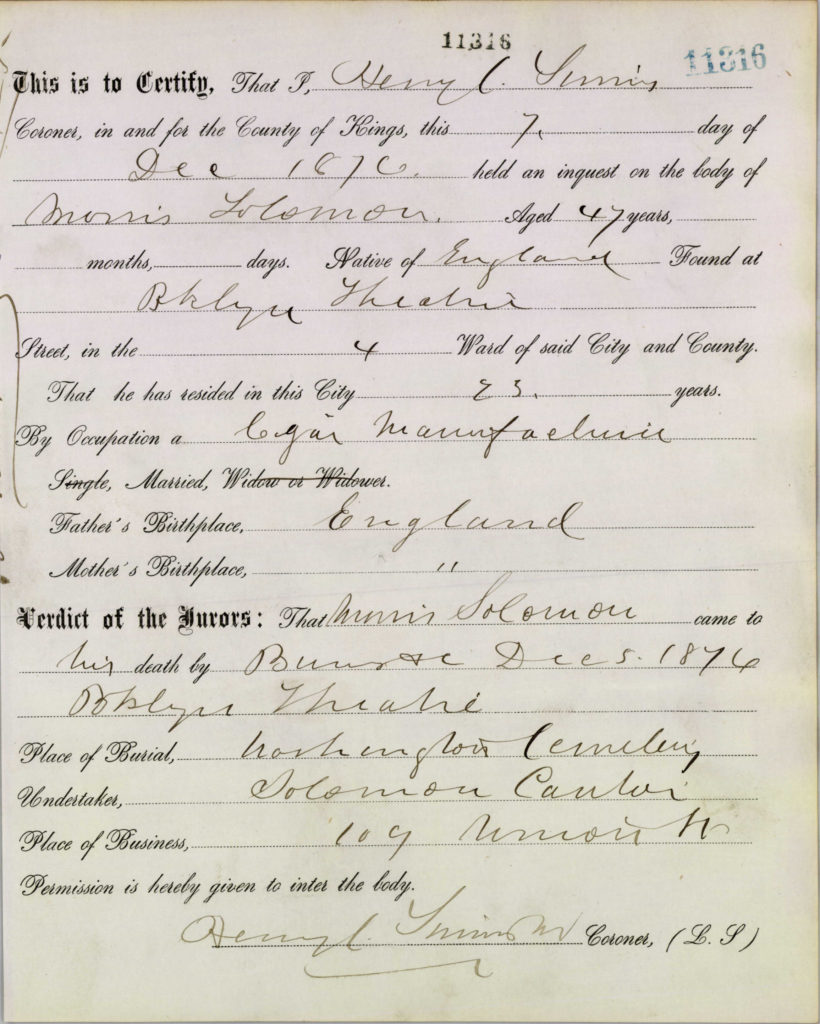 11316
11316
This is to Certify, That I, Henry C. Simms
Coroner, in and for the County of Kings, this 7. day of
Dec 1876. held an inquest on the body of
Morris Solomon. Aged 47 years,
months, days. Native of England Found at
Bklyn Theatre
Street, in the 4 Ward of said City and County.
That he has resided in this City 23. years.
By Occupation a Cigar Manufacturer
Single, Married, Widow or Widower.
Father's Birthplace, England
Mother's Birthplace, "
Verdict of the Jurors: That Morris Solomon came to
his death by Burns &c Dec 5. 1876
Bklyn Theatre
Place of Burial, Washington Cemetery
Undertaker, Solomon
Place of Business, 109 Union St
Permission is hereby given to inter the body.
Henry C. Simms Coroner, (L. S)